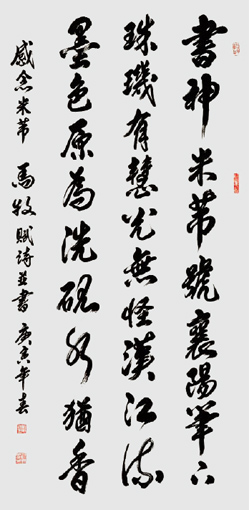 書神米芾號襄陽筆下
珠璣有慧光無怪漢江流
墨色原為洗硯水猶香
感念米芾 馬牧賦詩並書 庚寅年春